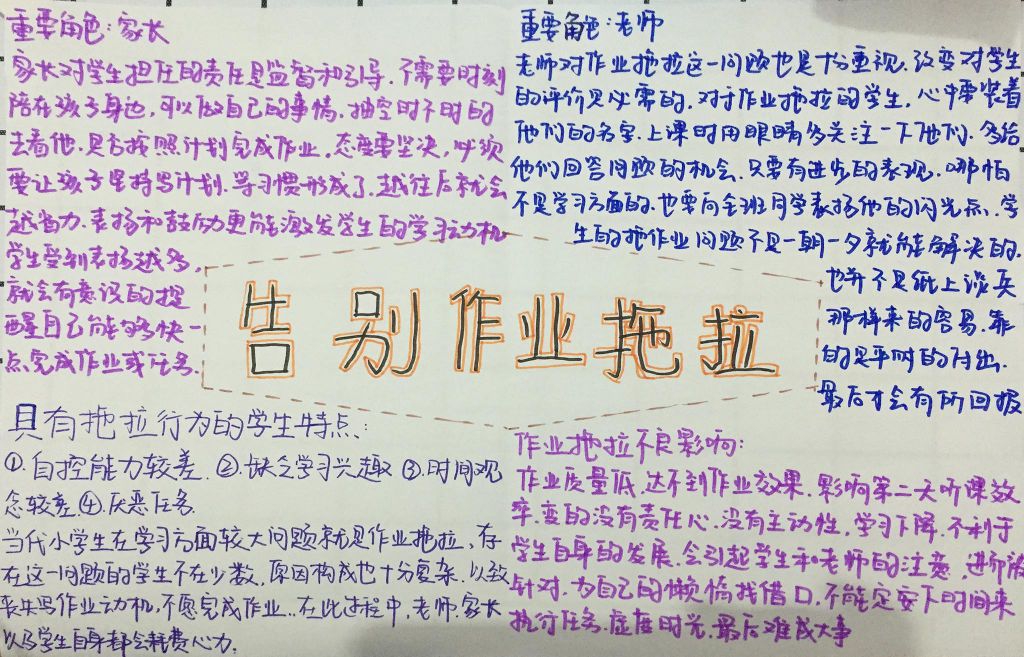 重要角色:家长
家长对学生担任的责任是监督和引导.不需要时刻
陪在孩子身边,可以做自己的事情,抽空时不时的
去看他.是否按照计划完成作业,态度要坚决,必须
要让孩子坚持写计划.学习惯形成了.越往后就会
越省力.表扬和鼓励更能激发学生的学习动机
学生受到表扬越多,
就会有意识的提
醒自己能够快一
点完成作业或任务.
重要角色:老师
老师对作业拖拉这一问题也是十分重视.改变对学生
的评价是必需的.对于作业拖拉的学生.心中要装着
他们的名字.上课时用眼睛多关注一下他们.多给
他们回答问题的机会.只要有进步的表现.哪怕
不是学习方面的.也要向全班同学表扬他的闪光点.学
生的拖作业问题不是一朝一夕就能解决的.
也并不是纸上谈兵
那样来的容易.靠
的是平时的付出.
最后才会有所回报
告别作业拖拉
具有拖拉行为的学生特点:
①.自控能力较差.②.缺乏学习兴趣③.时间观
念较差④.厌恶任务.
当代小学生在学习方面较大问题就是作业拖拉、存
在这一问题的学生不在少数,原因构成也十分复杂.以致
丧失写作业动机,不愿完成作业..在此过程中,老师.家长
以及学生自身都会耗费心力.
作业拖拉不良影响:
作业质量低.达不到作业效果.影响第二天听课效
率.变的没有责任心.没有主动性,学习下降.不利于
学生自身的发展.会引起学生和老师的注意,进行
针对.为自己的懒惰找借口.不能定安下时间来
执行任务.虚度时光.最后难成大事